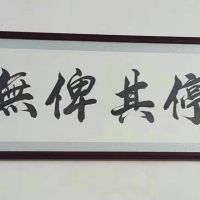 無俾其停